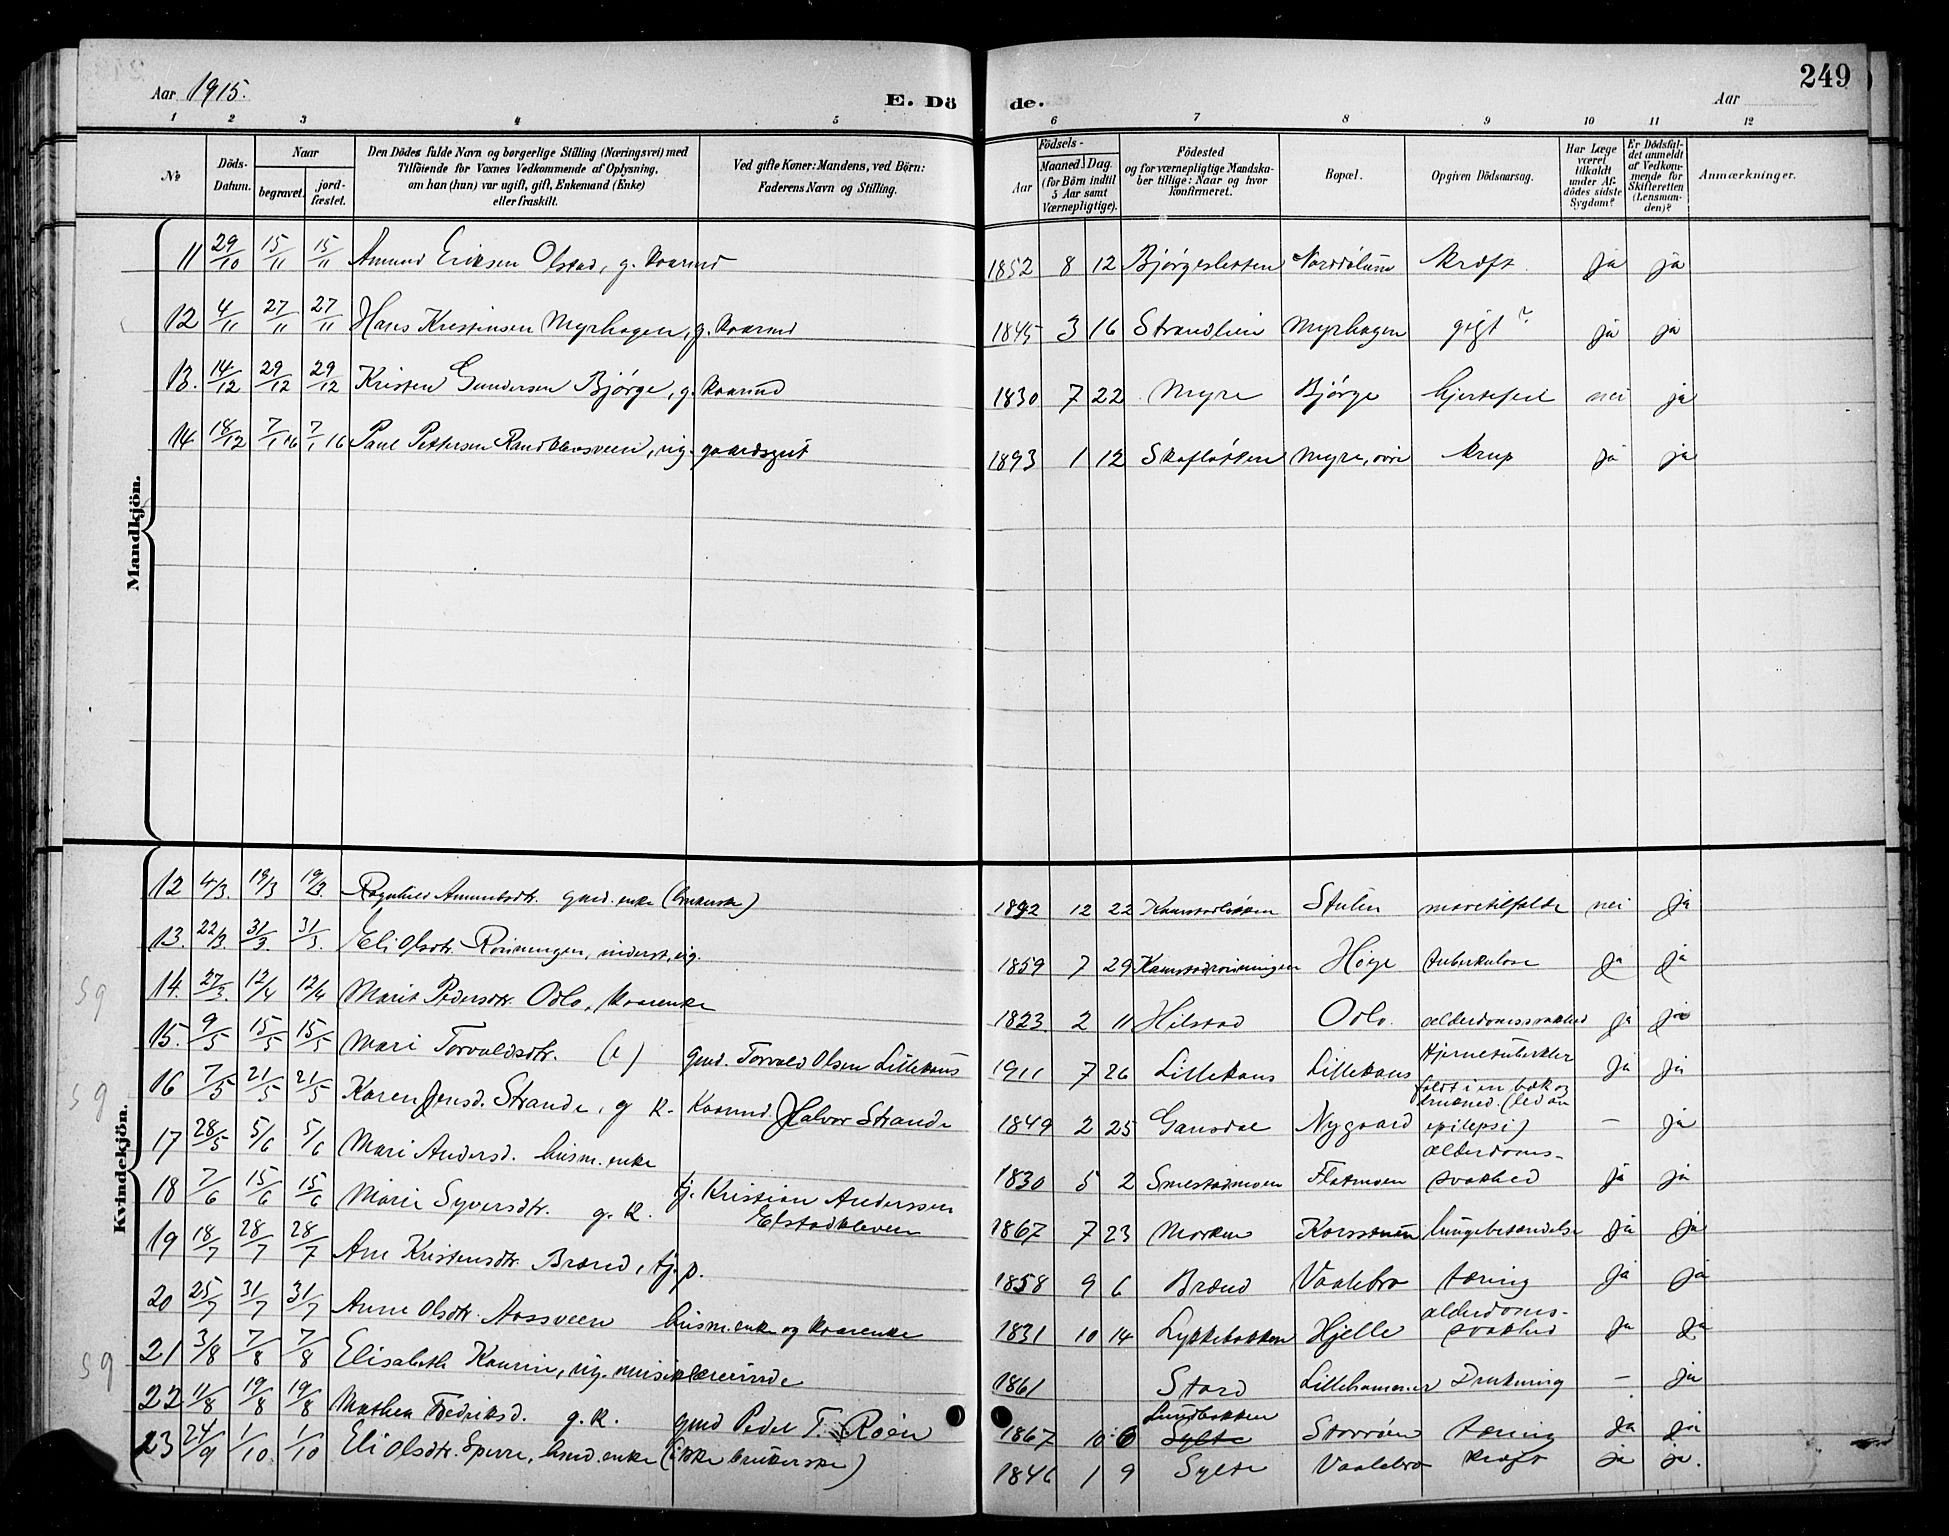 Aar 1915.
E. Dö
de.
Aar
249
1 2 3 4 5 6 7 8 9 10 11 12
No
Döds-Datum.
Naar
begravet.
jord-fæstet.
Den Dödes fulde Navn og borgerlige Stilling (Næringsvei) med
Tilföiende for Voxnes Vedkommende af Oplysning,
om han (hun) var ugift, gift, Enkemand (Enke)
eller fraskilt.
Ved gifte Koner: Mandens, ved Börn:
Faderens Navn og Stilling.
Födsels-
Aar
Maaned. Dag.
(for Börn indtil
5 Aar samt
Værnepligtige).
Födested
og for værnepligtige Mandska-
ber tillige: Naar og hvor
konfirmeret.
Bopæl.
Opgiven Dödsaarsag.
Har Læge
været
tilkaldt
under Af-
dödes sidste
Sygdom?
Er Dödsfal-
det anmeldt
af Vedkom-
mende for
Skifteretten
(Lensman-
den)?
Anmærkninger.
Mandkjön.
11 29/10 15/11 15/11 Amund Eriksen Olstad, g. kaarmd 1852 8 12 Bjørgesletten Norddølum kræft. ja ja
12 4/11 27/11 27/11 Hans Kristinsen Myrhagen, g. kaarmd 1845 3 16 Strandlien Myrhagen gigt? ja ja
13. 14/12 29/12 29/12 Kristen Gundersen Bjørge, g. kaarmd 1830 7 22 Myre Bjørge hjertefeil nei ja
14 18/12 7/1 16 7/1 16 Paul Pettersen Randklevsveen, ug. gaardsgut 1893 1 12 Skafløkken Myre, øvre krup ja ja
Kvindekjön.
12 4/3. 19/3 19/3 Ragnhild Amundsdtr. gmd. enke (brukerske) 1892 12 22 Kamstadløkken Stulen mavetilfælde nei ja
13. 22/3. 31/3. 31/3. Eli Olsdtr. Rønningen, inderst, ug. 1859 7 29 Kamstadrønningen Høge tuberkulose ja ja
59
14. 27/3. 12/4 12/4 Marit Pedersdtr. Odlo, kaarenke 1823 2 11 Hilstad Odlo. alderdomssvakhed ja ja
15. 9/5 15/5 15/5 Mari Torvaldsdtr. (e) gmd. Torvald Olsen Lillekaus 1911 7 26 Lillekaus Lillekaus Hjernetuberkler ja ja
59
16 7/5 21/5 21/5 Karen Jensd. Strande, g k. kaarmd. Halvor Strande 1849 2 25 Gausdal Nygaard faldt i en bæk og
drukned. (led av
epilepsi) — ja
17 28/5 5/6 5/6 Mari Andersd. husm. enke 1830 5 2 Smestadmoen Flatmoen alderdoms-
svakhed ja ja
18 7/6 15/6 15/6 Marie Syversdtr. g. k. tj. Kristian Anderssen
Elstadkleven 1867 7 23 Morken Korsstuen lungebetændelse ja ja
19 18/7 28/7 28/7 Ane Kristensdtr. Brænd, tj. p. 1858 9 6 Brænd Vaalebro tæring ja ja
20 25/7 31/7 31/7 Anne Olsdtr. Aassveen husm. enke og kaarenke 1831 10 14 Lykkebakken Hjelle alderdoms-
svakhed ja ja
59
21 3/8 7/8 7/8 Elisabeth Kaurin, ug. musiklærerinde 1861 Stord Lillehammer Drukning — ja
22 11/8 19/8 19/8 Mathea Fredriksd. g. k. gmd Peder T. Røen 1867 10 6 Lundbakken
Sylte Storrøen tæring ja ja
23 24/9 1/10 1/10 Eli Olsdtr. Sperre, husmd. enke (ikke brukerske) 1846 1 9 Sylte Vaalebro kræft ja ja.